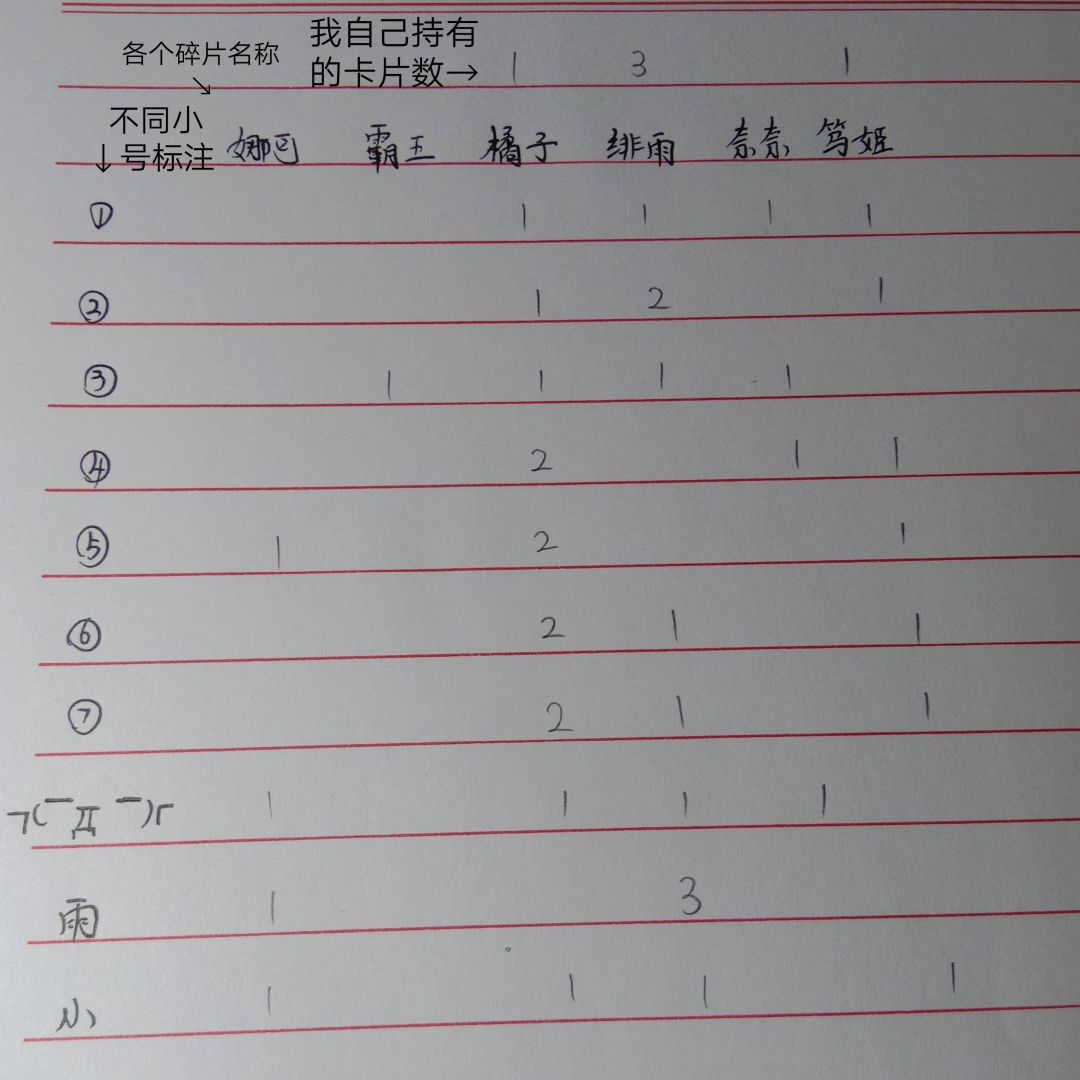 各个碎片名称 我自己持有
↘ 的卡片数→ 1 3 1
不同小
↓号标注 娜可 霸王 橘子 绯雨 奈奈 笃姬
① 1 1 1 1
② 1 2 1
③ 1 1 1 1
④ 2 1 1
⑤ 1 2 1
⑥ 2 1 1
⑦ 2 1 1
¬(￣Д￣)г 1 1 1 1
雨 1 3
小 1 1 1 1